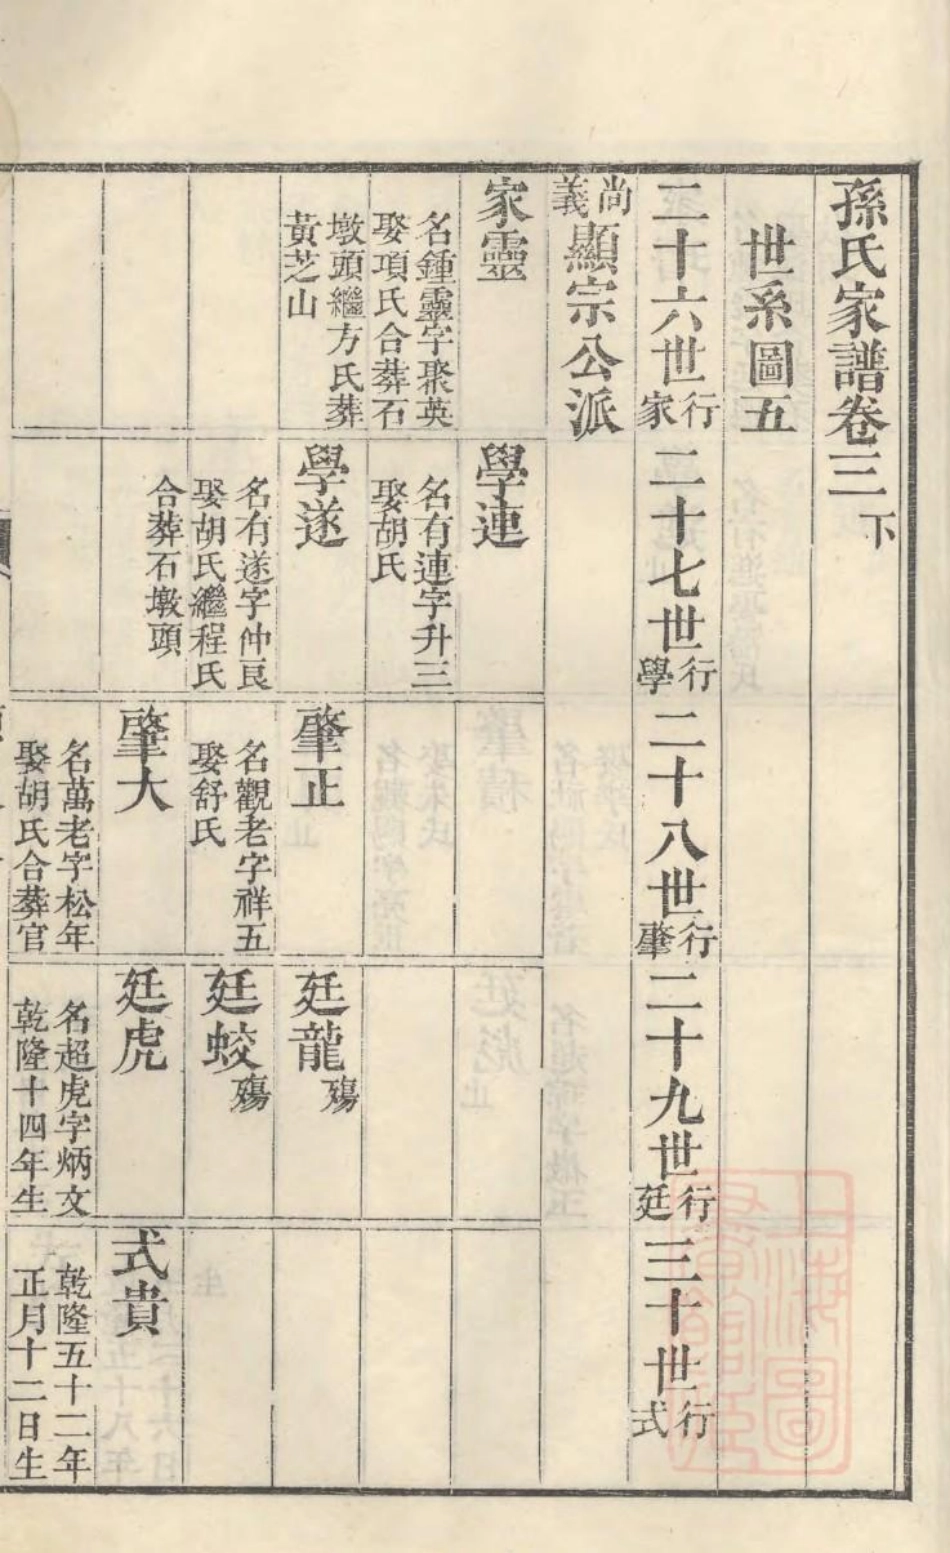 孫氏家譜卷三下
世系圖五
二十六世行家
二十七世行學
二十八世行肇
二十九世行廷
三十世行式
尚義顯宗公派
家靈
名鍾靈字聚英
娶項氏合葬石
墩頭繼方氏葬
黃芝山
學連
名有連字升三
娶胡氏
學遂
名有遂字仲良
娶胡氏繼程氏
合葬石墩頭
肇正
名觀老字祥五
娶舒氏
肇大
名萬老字松年
娶胡氏合葬官
廷龍殤
廷蛟殤
廷虎
名超虎字炳文
乾隆十四年生
式貴
乾隆五十二年
正月十二日生